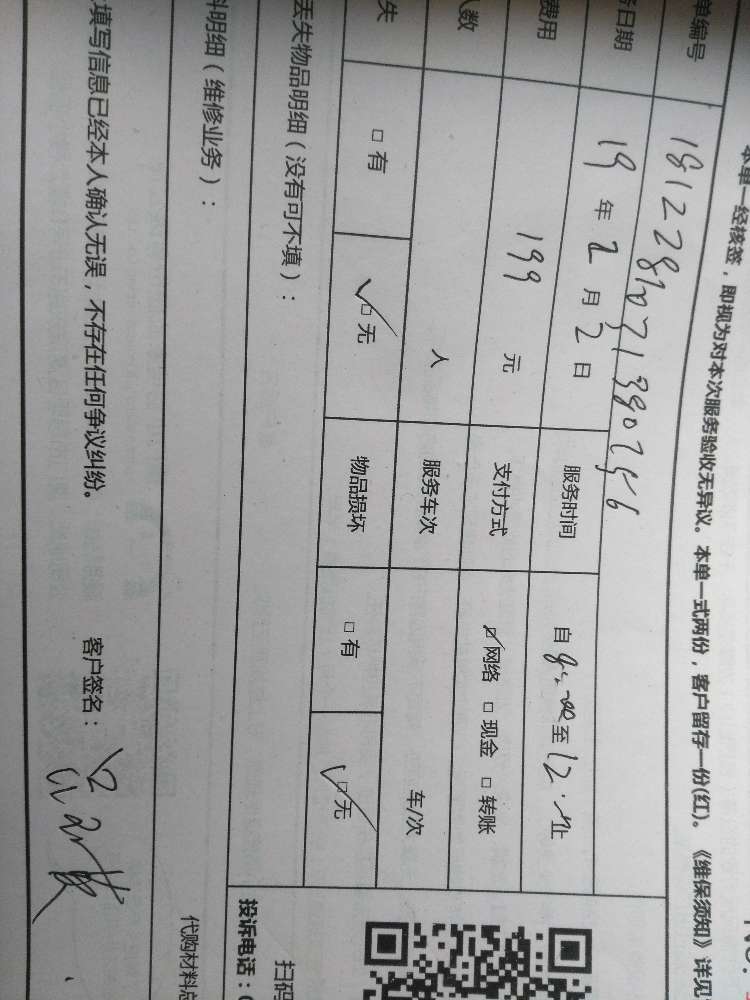 No.
本单一经核签，即视为对本次服务验收无异议。本单一式两份，客户留存一份(红)。《维保须知》详见
单编号
务日期 19年2月2日 服务时间 自 至12: 止
费用 199元 支付方式 ☑网络 □现金 □转账
人数 人 服务车次 车/次
失 □有 ☑无 物品损坏 □有 ☑无
丢失物品明细（没有可不填）：
料明细（维修业务）：
扫码
投诉电话：
代购材料总
填写信息已经本人确认无误，不存在任何争议纠纷。 客户签名：